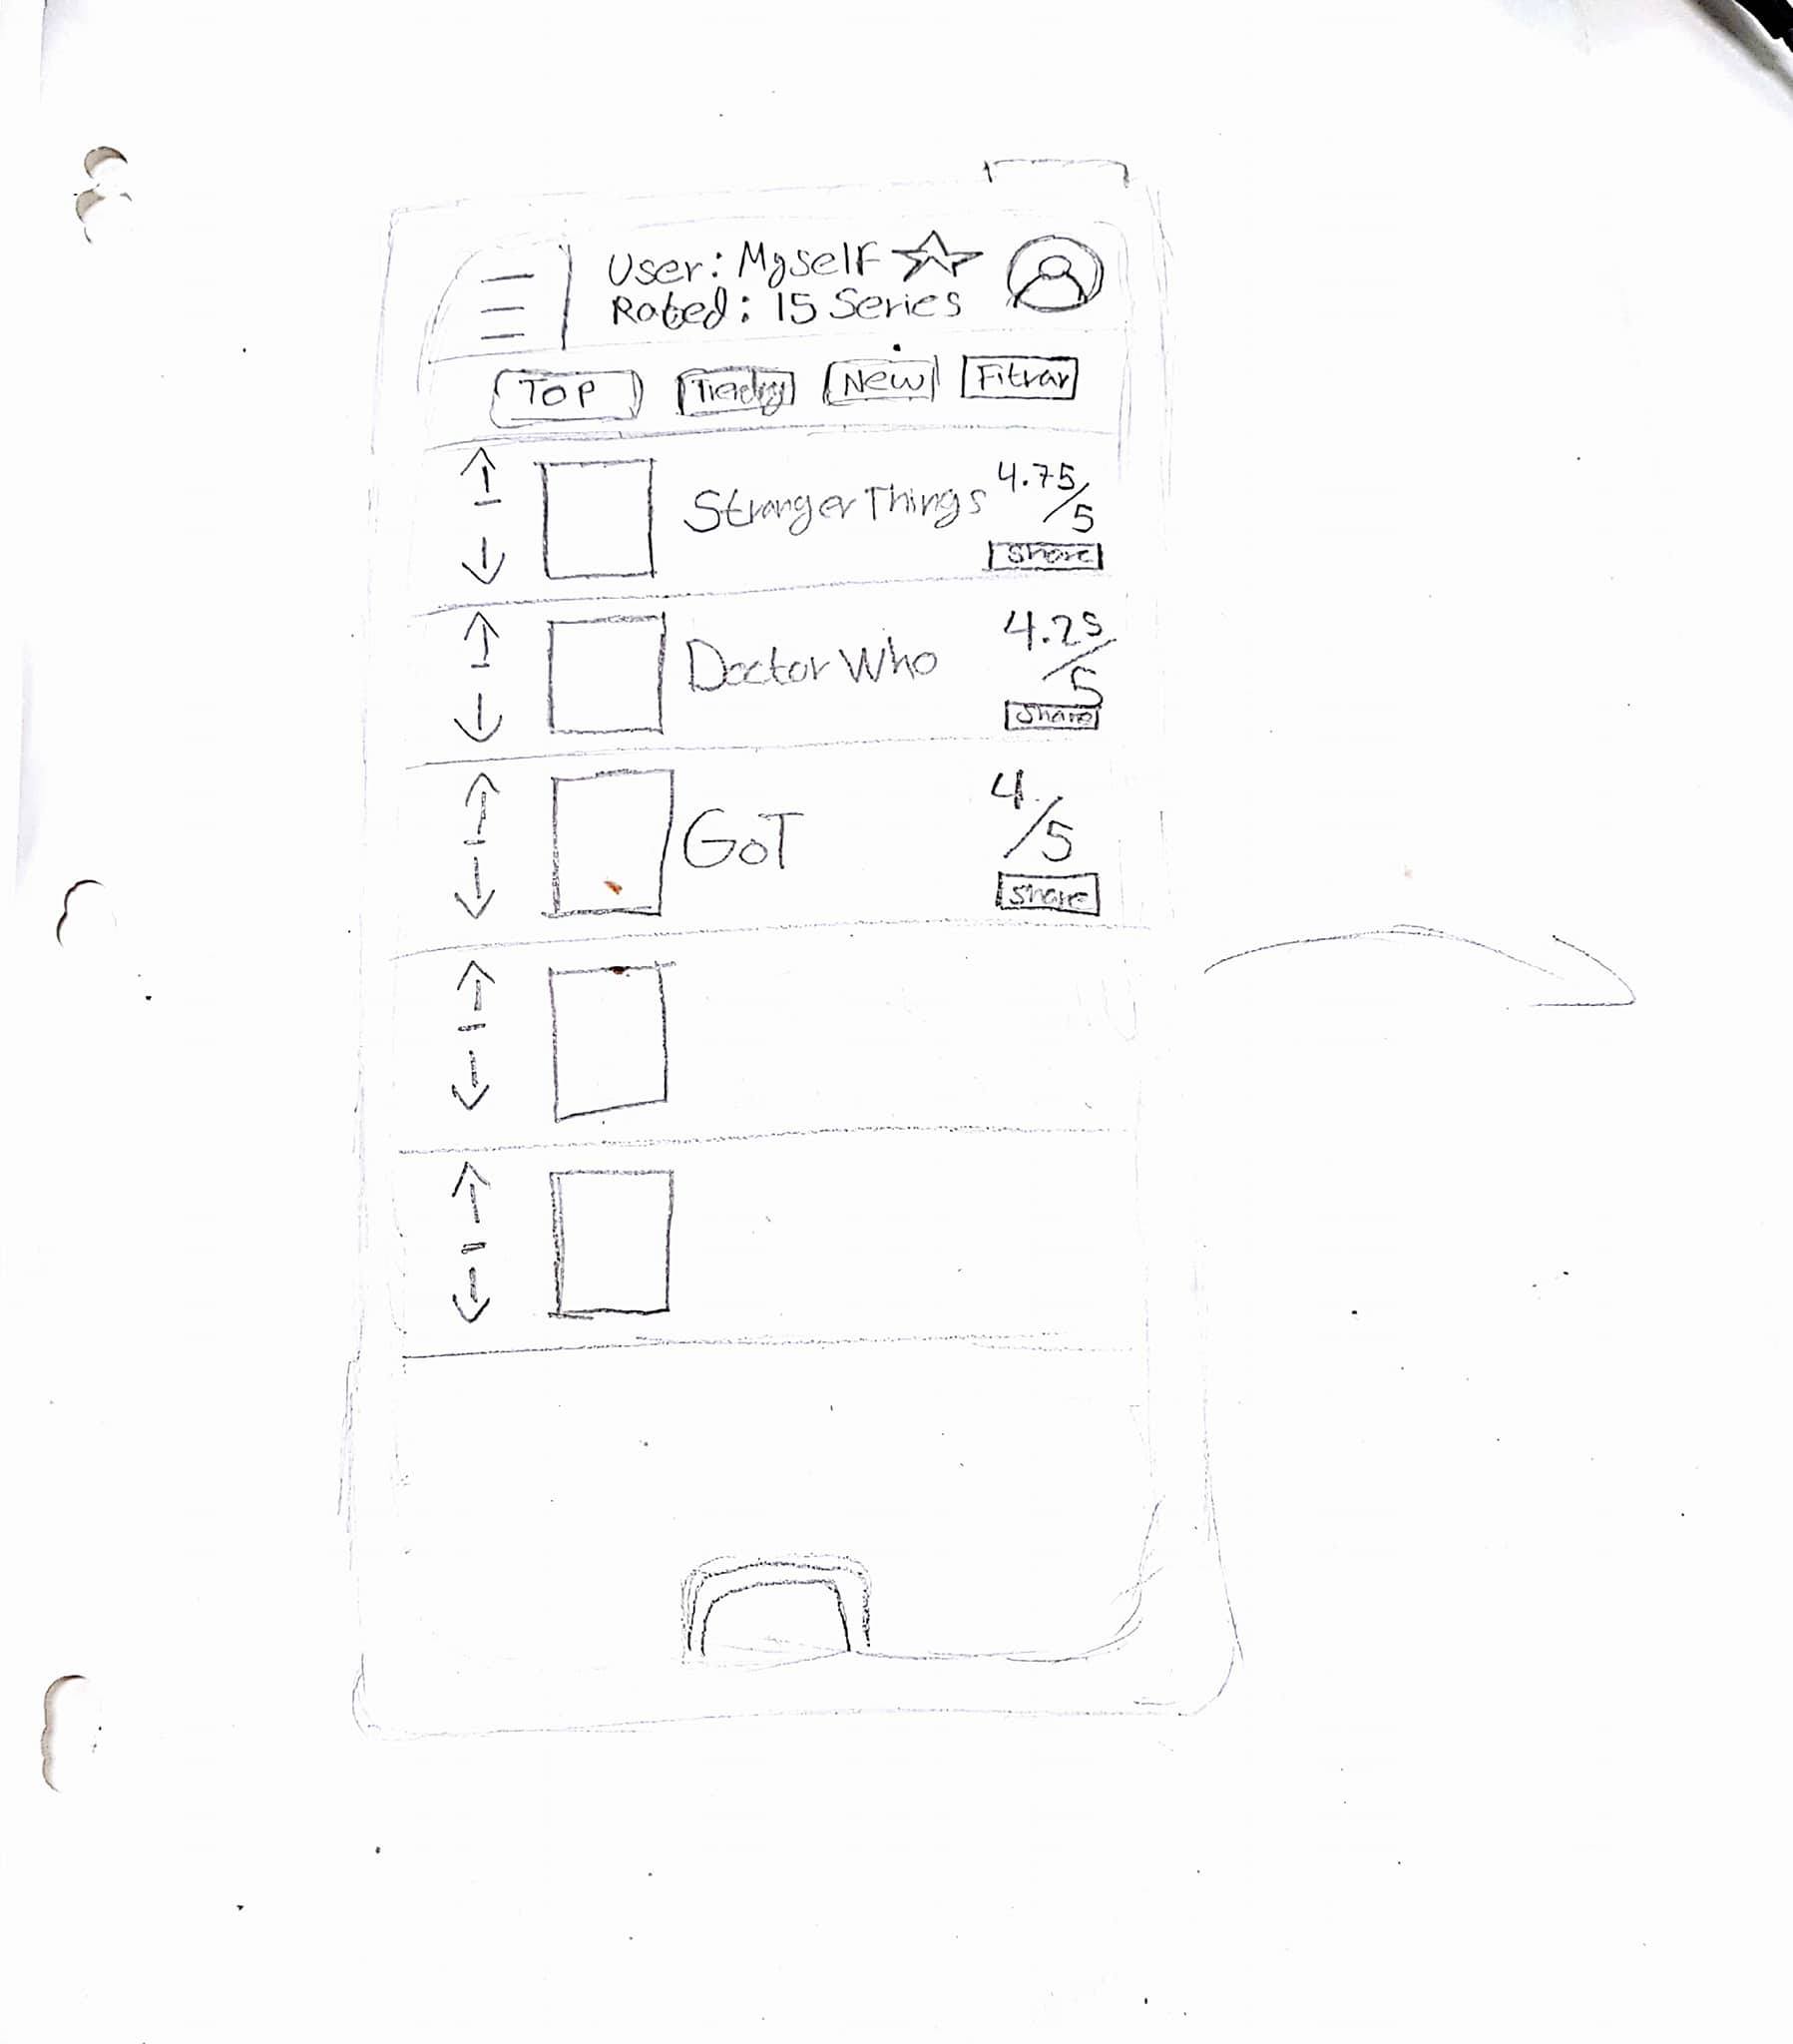 User: Myself
Rated: 15 Series
TOP Trending New Fitrar
Stranger Things 4.75/5
Share
Doctor Who 4.25/5
Share
GoT 4/5
Share